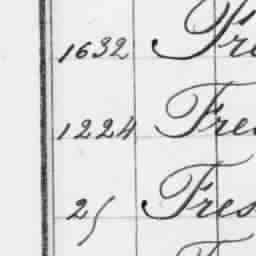 1632 Fre
1224 Fres
25 Fres